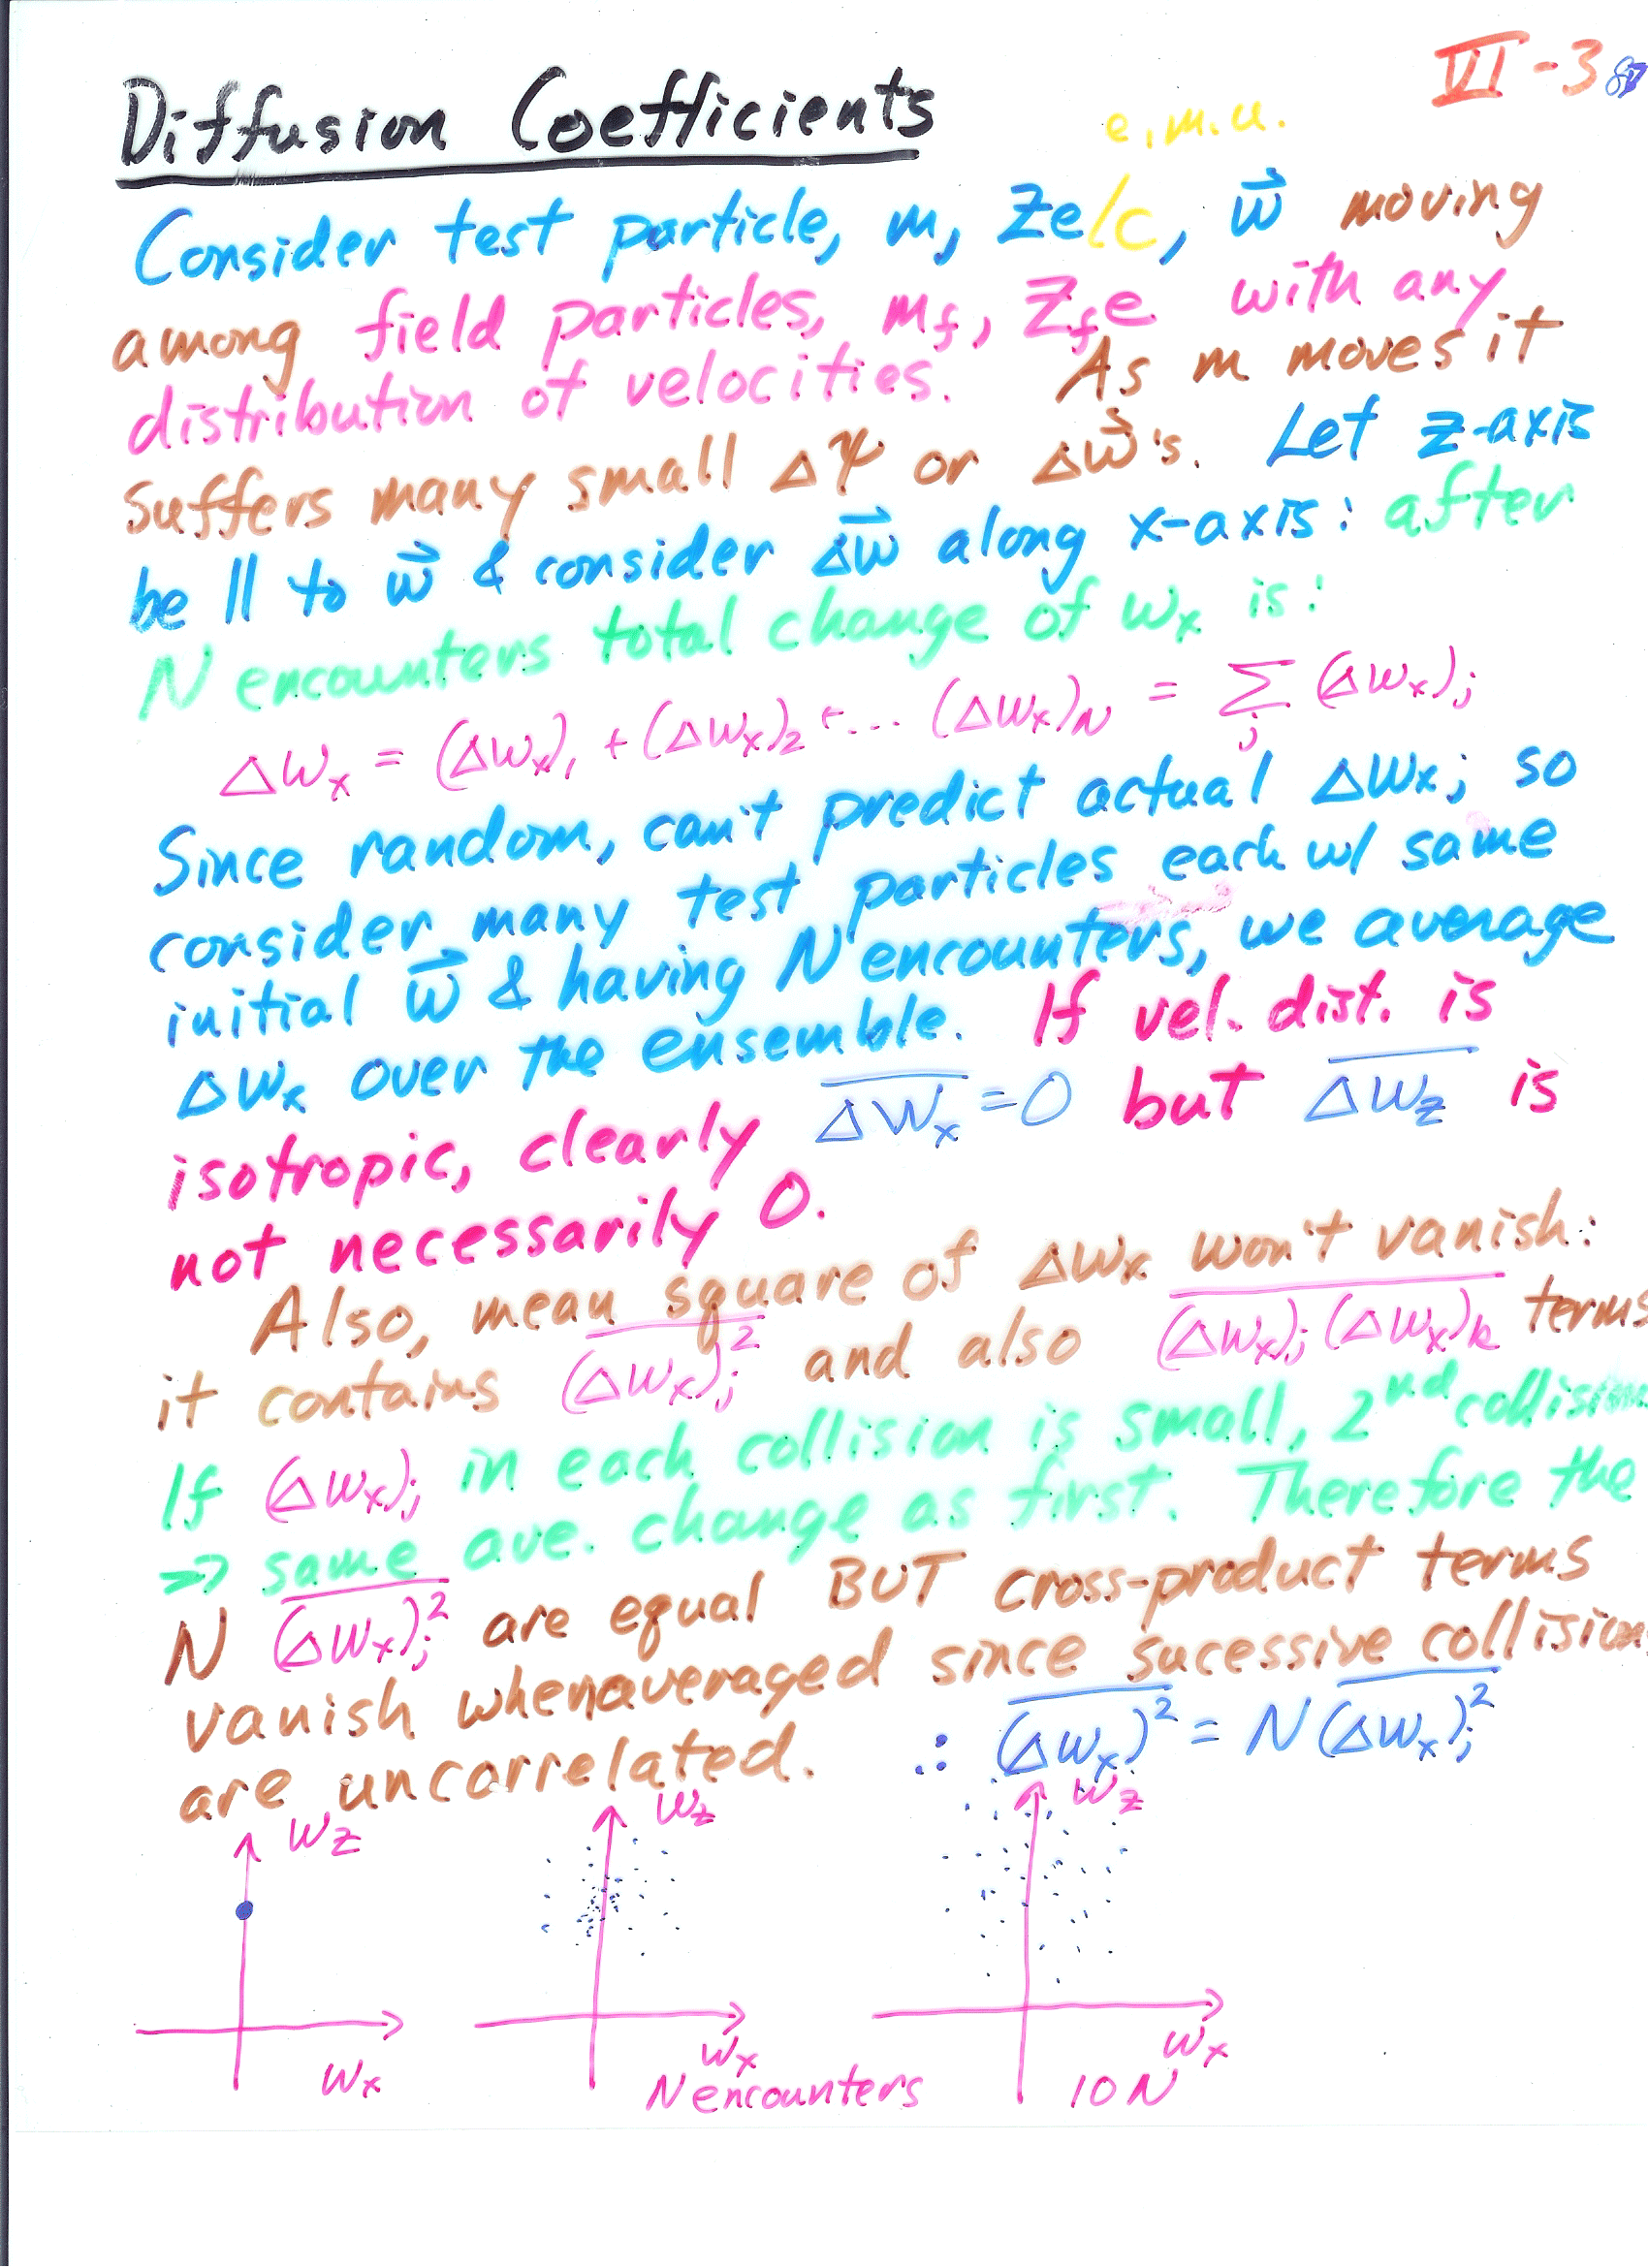 VI-3
Diffusion Coefficients
e.m.u.
Consider test particle, m, Ze/c, w⃗ moving
among field particles, m_f, Z_f e with any
distribution of velocities. As m moves it
suffers many small Δψ or Δw⃗'s. Let z-axis
be || to w⃗ & consider Δw⃗ along x-axis: after
N encounters total change of w_x is:
Δw_x = (Δw_x)_1 + (Δw_x)_2 + ... (Δw_x)_N = Σ_j (Δw_x)_j
Since random, can't predict actual Δw_x; so
consider many test particles each w/ same
initial w⃗ & having N encounters, we average
Δw_x over the ensemble. If vel. dist. is
isotropic, clearly \overline{Δw_x} = 0 but \overline{Δw_z} is
not necessarily 0.
Also, mean square of Δw_x won't vanish:
it contains \overline{(Δw_x)_j^2} and also \overline{(Δw_x)_j (Δw_x)_k} terms
If (Δw_x)_j in each collision is small, 2nd collision
⇒ same ave. change as first. Therefore the
N \overline{(Δw_x)_j^2} are equal BUT cross-product terms
vanish when averaged since sucessive collision
are uncorrelated. ∴ \overline{(Δw_x)^2} = N \overline{(Δw_x)_j^2}
w_z w_z w_z
w_x w_x w_x
N encounters 10 N